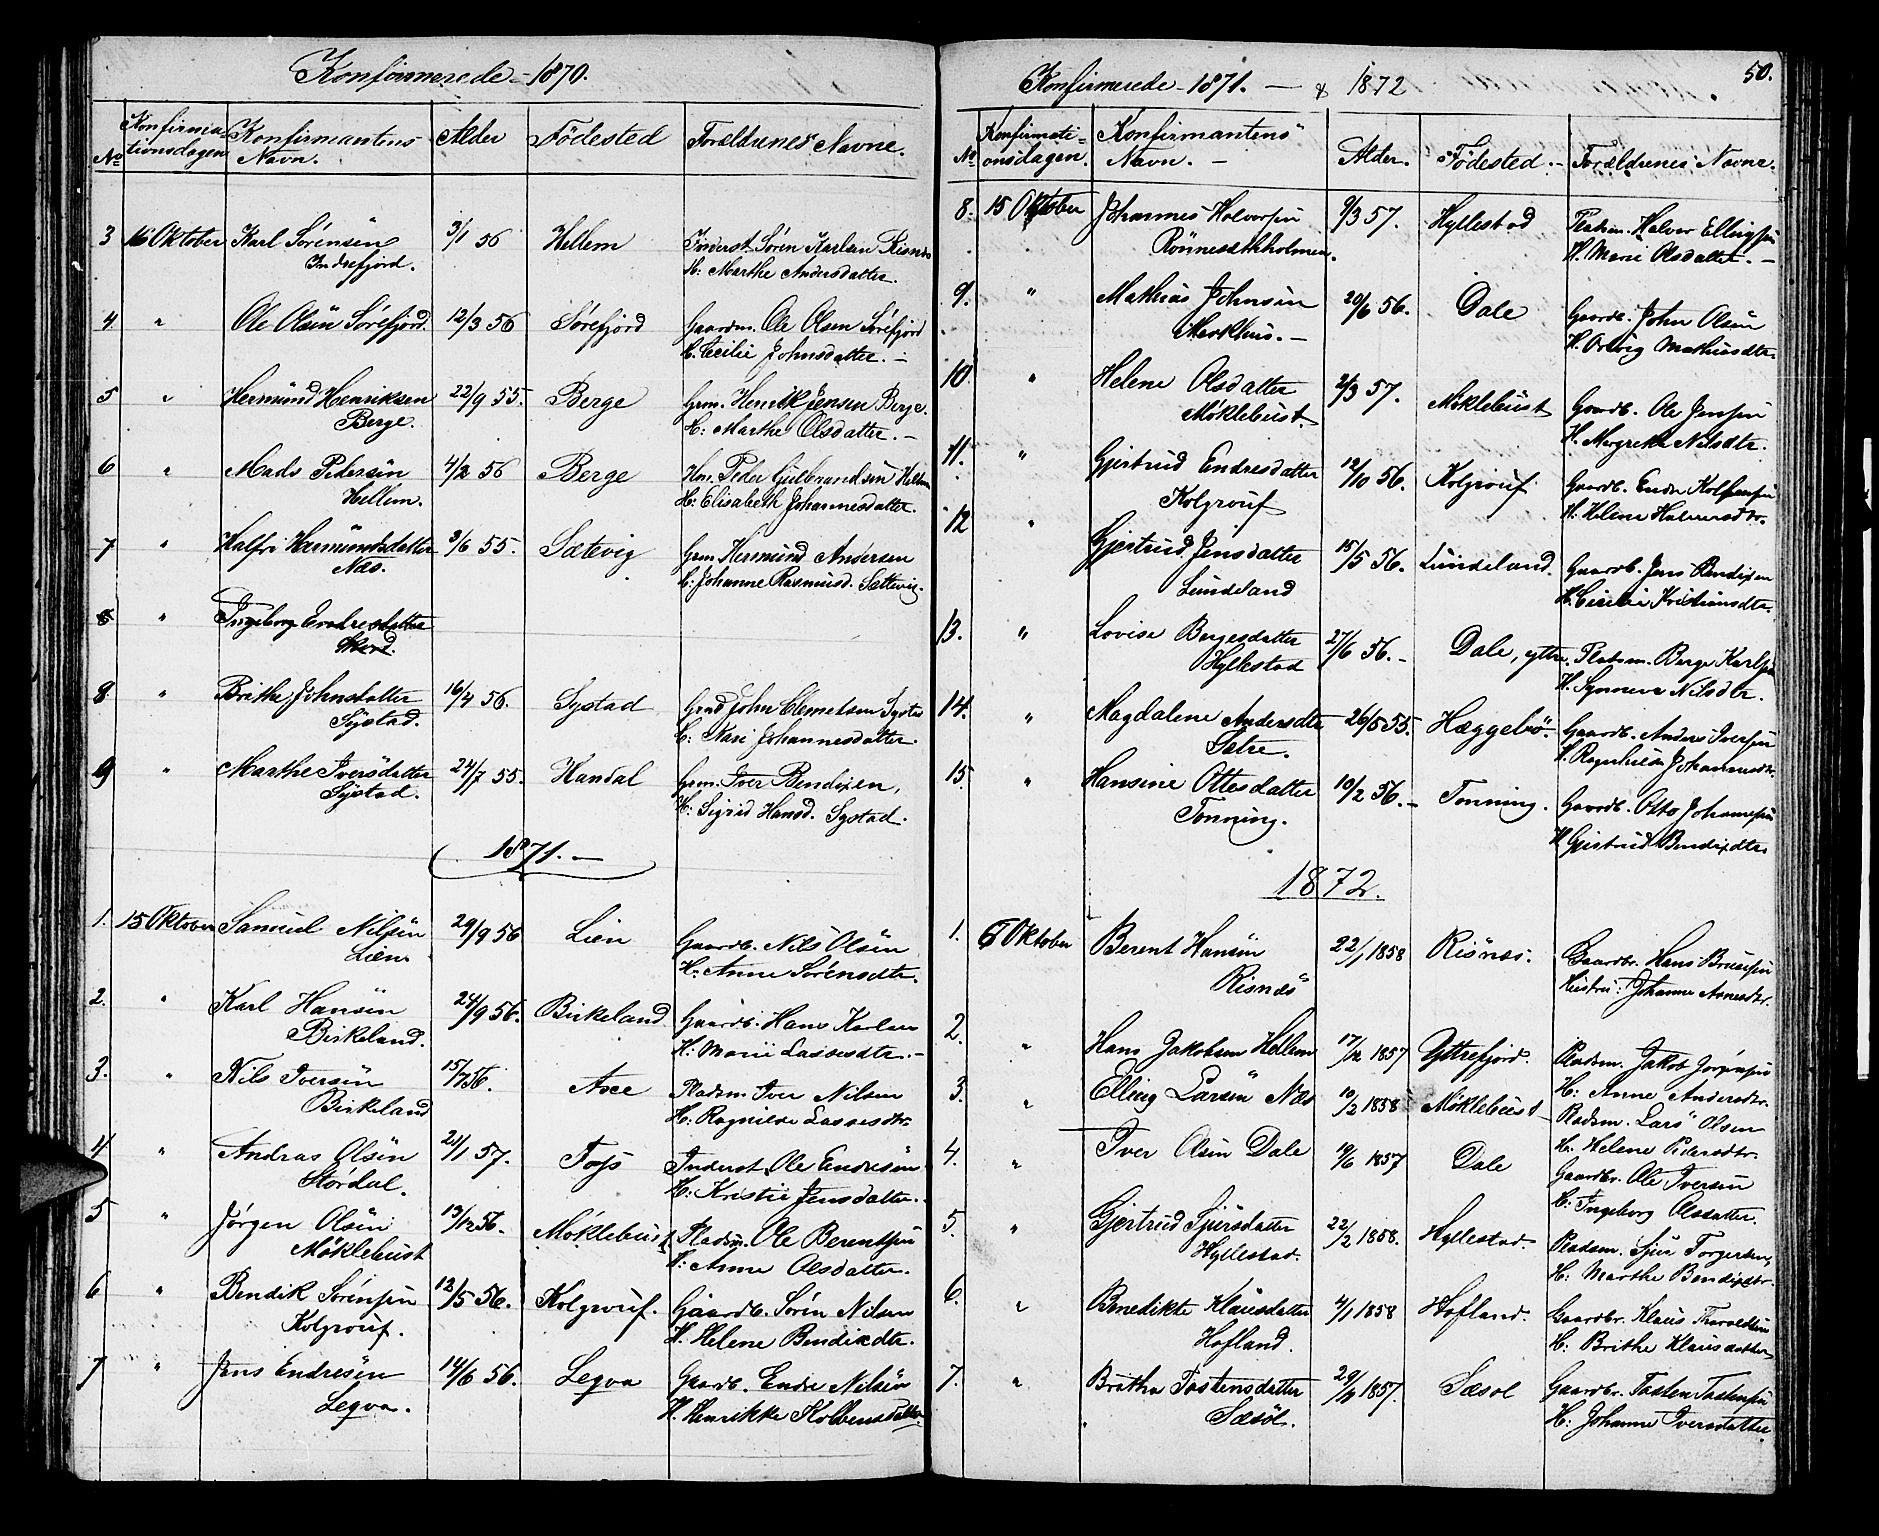 Konfirmerede - 1870.
No Konfirmationsdagen Konfirmantens Navn. Alder Födested Forældrenes Navne.
3 16 Oktober Karl Sörensen 3/1 56 Hellem Inderst Sören Karlsen Risnes
Indrefjord. H: Marthe Andersdatter.
4 " Ole Olsen Sörefjord. 12/3 56 Sörefjord Gaardm. Ole Olsen Sörefjord
H. Cecilie Johnsdatter. -
5 " Hermund Henriksen 22/9 55. Berge Grm. Henrik Jensen Berge.
Berge. H: Marthe Olsdatter. -
6 " Mads Pedersen 4/2 56 Berge Peder Gulbrandsen Hellem
Hellem. H: Elisabeth Johannesdatter.
7 " Halfri Hermundsdatter 3/6 55. Sætevig Grm Hermund Andersen
Næs. H: Johanne Rasmusd. Sættevig.
8 " Ingeborg Endresdatter
8 " Brithe Johnsdatter 16/4 56. Systad John Clemetsen Systad
Systad. H: Kari Johannesdatter.
9 " Marthe Iversdatter 24/7 55. Handal Grm. Iver Bendixen,
Systad. H: Sigrid Hansd. Systad.
1871. -
1. 15 Oktober Samuel Nilsen 29/9 56 Lien Gaardb. Nils Olsen
Lien. H: Anne Sörensdtr.
2. " Karl Hansen 24/9 56. Birkeland Gaardb. Hans Karlsen
Birkeland. H: Marie Lassesdtr. -
3. " Nils Iversen 15/7 56. Aase Pladsm. Iver Nilsen
Birkeland H: Ragnilde Lassesdtr
4 " Andras Olsen 21/1 57. Inderst. Ole Endresen
Stördal. H: Kristi Jensdatter.
5 " Jørgen Olsen 13/12 56. Møklebust Pladsm. Ole Berentsen
Møklebust H: Anne Olsdatter.
6 " Bendik Sörensen 12/5 56. Kolgrouf. Gaardb. Sörn Nilsen
Kolgrouf. H. Helene Bendixdtr.
7 " Jens Endresen 14/6 56. Leqva Gaardb. Endre Nilsen
Leqva. H. Henrikke Kolbensdatter
50.
Konfirmerede - 1871. - & 1872
No Konfirmationsdagen. Konfirmantens Navn. - Alder. Födested. - Forældrenes Navne.
8. 15 Oktober Johannes Halversen 9/3 57. Hyllestad Pladsm. Halver Ellingsen
Rönnesekholmen. H. Marie Olsdatter. -
9. " Mathias Johnsen 20/6 56. Dale Gaardb. John Olsen
Markhus. - H. Mathiasdtr.
10. " Helene Olsdatter 2/3 57. Møklebust Gaardb. Ole Jensen
Møklebust. H. Margrethe Nilsdtr.
11. " Gjertrud Endresdatter 12/10 56. Kolgrouf Gaardb. Endre
Kolgrouf H. Helene
12 " Gjertrud Jensdatter 15/5 56. Lundeland. Gaardb. Jens Bendixen
Lundeland H. Cecilie Kristiansdtr.
13. " Lovise Bergesdatter 27/6 56. - Dale, ytre. Pladsm. Berge Karlsen
Hyllestad H. Synneve Nilsdtr.
14. " Magdalene Andersdtr 26/5 55. Hæggebö. Gaardb. Anders Iversen
Sætre. H. Ragnhilda Johannesdtr.
15. " Hansine Ottesdatter 10/2 56. - Tonning. Gaardb. Otto Johannesen
Tonning. H Gjertrud Bendixdtr.
1872.
1. 6 Oktober Berent Hansen 22/1 1858 Risnæs. Gaardbr. Hans
Risnæs Hustru: Johanne
2. " Hans Jakobsen Hellem 17/12 1857 Yttrefjord. Pladsm. Jakob Jørgensen
H: Anne Andersdtr.
3. " Elling Larsen Næs 10/2 1858 Møklebust Pladsm. Lars Olsen
H: Helene Pedersdtr.
4. " Iver Olsen Dale 19/6 1857 Dale Gaardbr. Ole Iversen
H: Ingeborg Olsdatter.
5. " Gjertrud Sjursdatter 22/2 1858. Hyllestad. Pladsm. Sjur Torgersen,
Hyllestad. H: Marthe Bendixdtr
6. " Benedikte Klausdatter 4/1 1858 Hofland. Gaardbr. Klaus Tharaldsen
Hofland. H: Brithe Klausdatter
7. " Brithe Tostensdatter 1857. Sæsol Gaardbr. Tosten Tostensen
Sæsöl. H: Johanne Iversdatter.